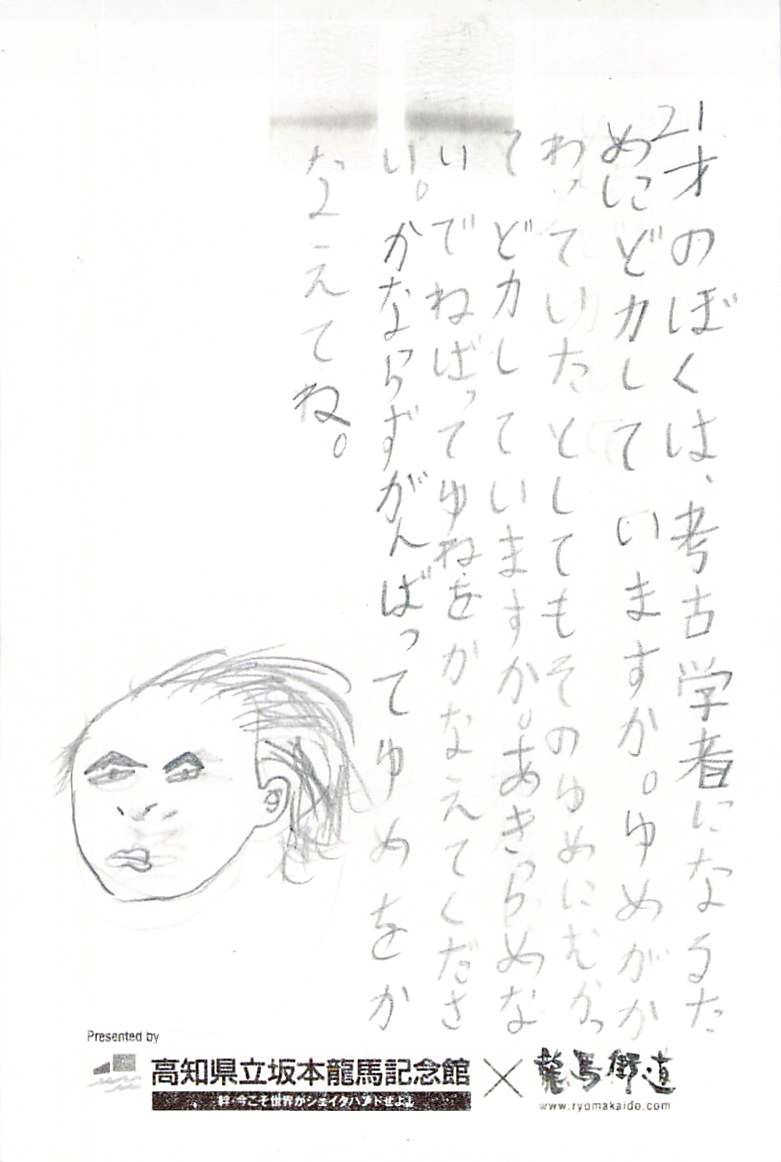 21才のぼくは、考古学者になるた
めにど力していますか。ゆめがか
わっていたとしてもそのゆめにむかっ
てど力していますか。あきらめな
いでねばってゆねをかなえてくださ
い。かならずがんばってゆめをか
なえてね。
Presented by
高知県立坂本龍馬記念館 × 龍馬街道
絆・今こそ世界がシェイクハンドぜよ！
www.ryomakaido.com